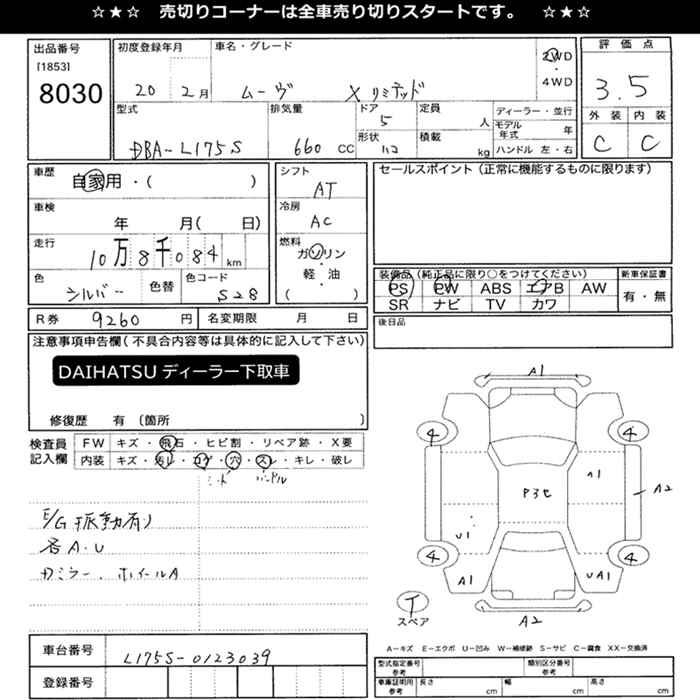 ☆★☆ 売切りコーナーは全車売り切りスタートです。 ☆★☆
出品番号
[1853]
8030
初度登録年月
20 2月
車名・グレード
ムーヴ Xリミテッド
2WD
・
4WD
評価点
3.5
外装 内装
C C
型式
DBA-L175S
排気量
660 CC
ドア
5
形状
定員
人
積載
kg
ディーラー・並行
モデル年式 年
ハンドル 左・右
車歴
自家用・( )
車検
年 月( 日)
走行
10万8千084km
色
シルバー
色替
色コード
S28
シフト
AT
冷房
AC
燃料
ガソリン
・
軽・油
( )
セールスポイント(正常に機能するものに限ります)
装備品(純正品に限り○をつけてください)
PS PW ABS エアB AW
SR ナビ TV カワ
新車保証書
有・無
R券 9260 円
名変期限 月 日
後日品
注意事項申告欄(不具合内容等は具体的に記入して下さい)
DAIHATSU ディーラー下取車
修復歴 有〔箇所 〕
検査員記入欄
FW キズ・飛石・ヒビ割・リペア跡・X要
内装 キズ・汚レ・コゲ・穴・スレ・キレ・破レ
シート ハンドル
E/G振動有り
各A・U
カミラー、ホイールA
A1
4 4
A1
A2
P3C
U1
4 4
A1 UA1
A2
T
スペア
A-キズ E-エクボ U-凹み W-補修跡 S-サビ C-腐食 XX-交換済
車台番号 L175S-0123039
登録番号
型式指定番号 参考
類別区分番号 参考
車庫証明用 参考 長さ cm 幅 cm 高さ cm